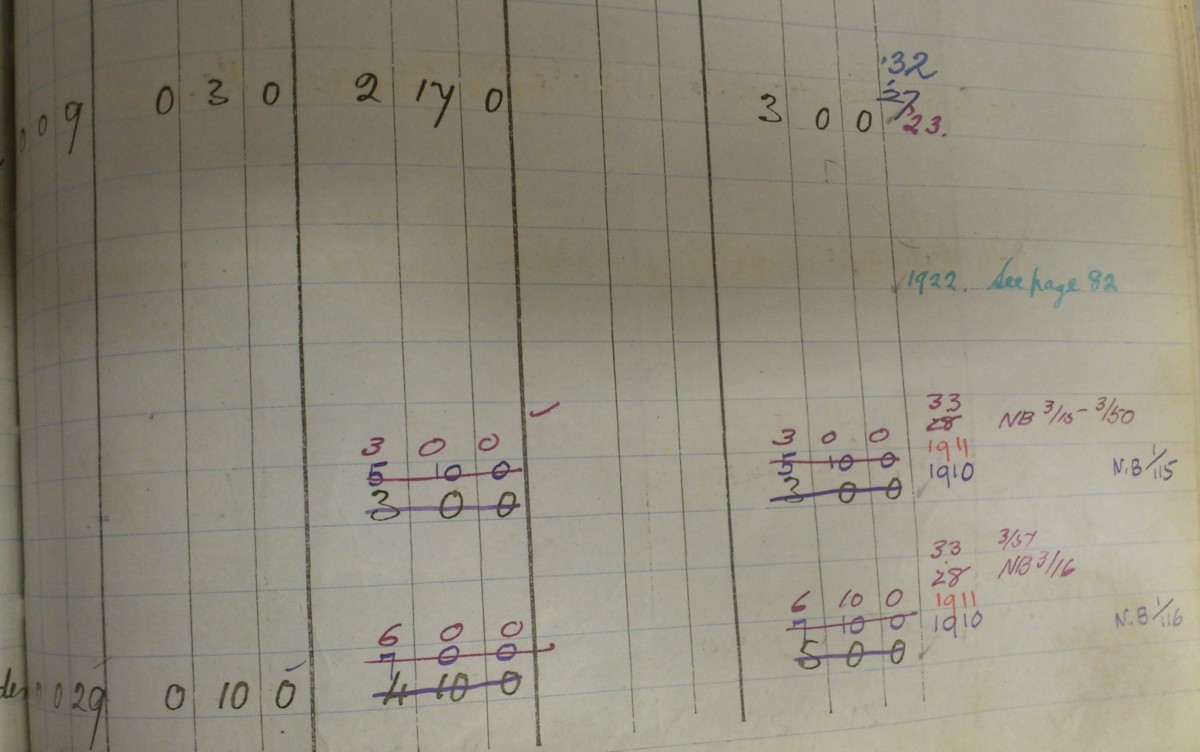 '32
27
0 0 9 0 3 0 2 17 0 3 0 0 23.
1922. See page 82
33
3 0 0 3 0 0 28 NB 3/15 - 3/50
5 10 0 5 10 0 1911
3 0 0 3 0 0 1910 N.B 1/115
33 3/51
28 NB 3/16
6 10 0 1911
6 0 0 7 10 0 1910 N.B 1/116
7 0 0 5 0 0
0 0 29 0 10 0 4 10 0